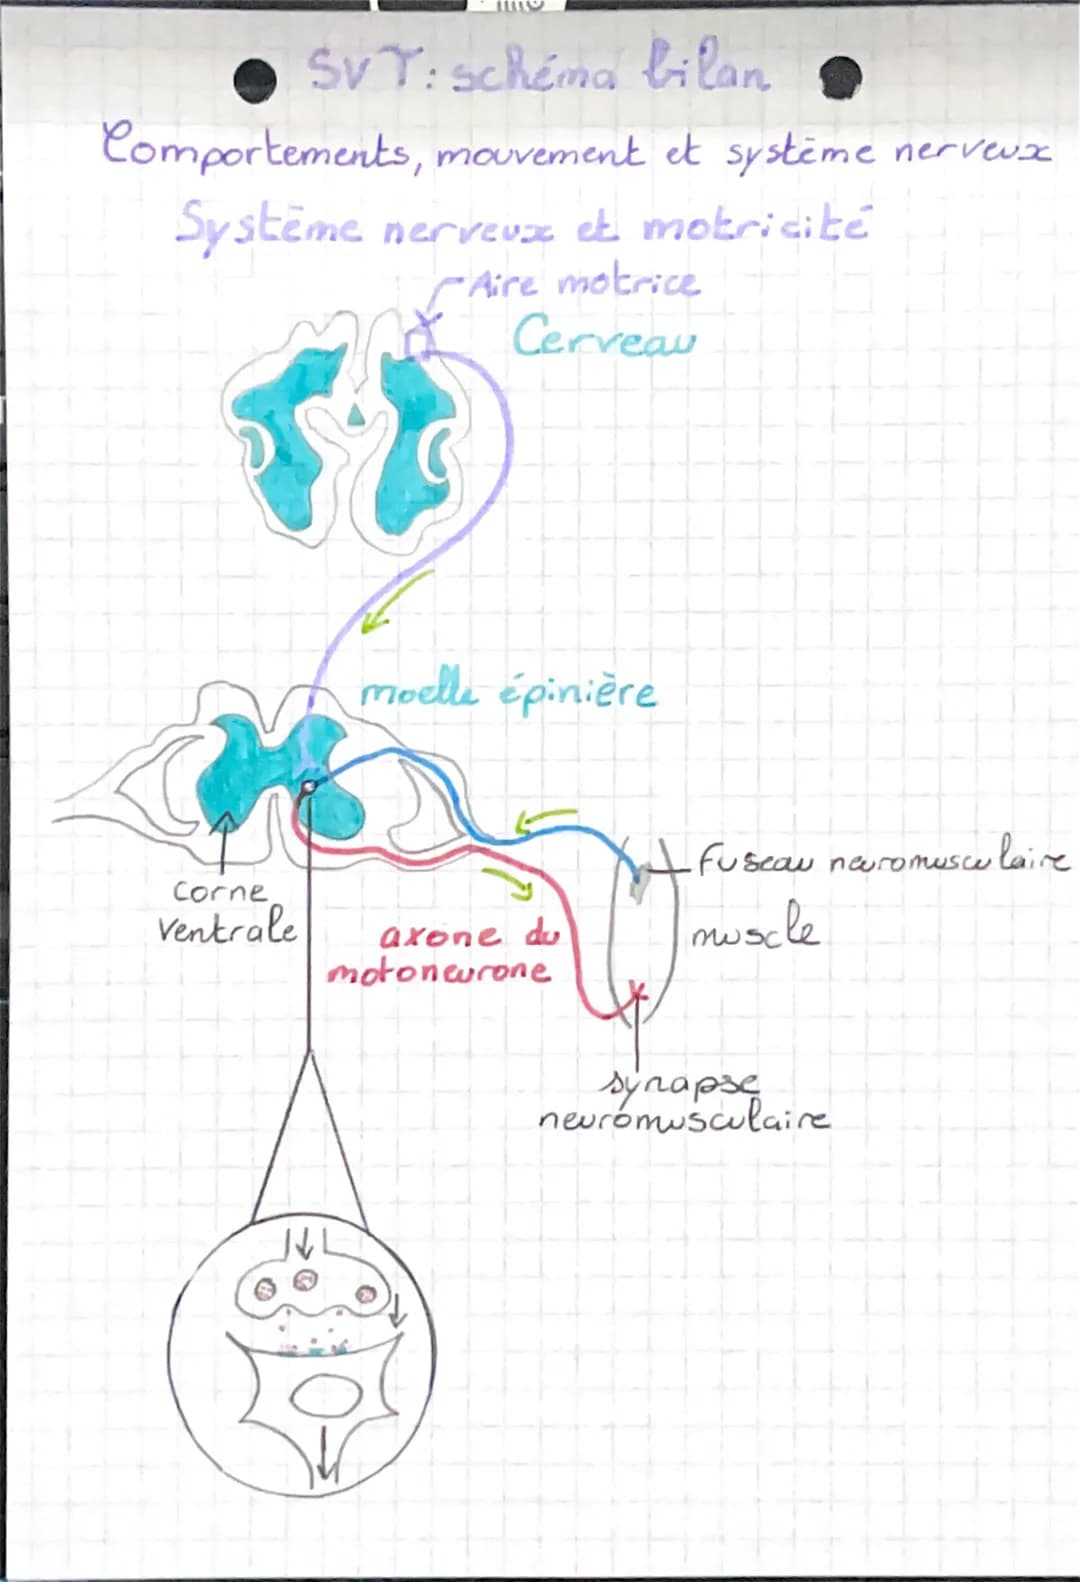 SVT: schéma bilan
Comportements, mouvement et système nerveux
Système nerveux et motricité
Aire motrice
Cerveau
moelle épinière
fuseau neuromusculaire
corne
ventrale
muscle
axone du
motoneurone
synapse
neuromusculaire